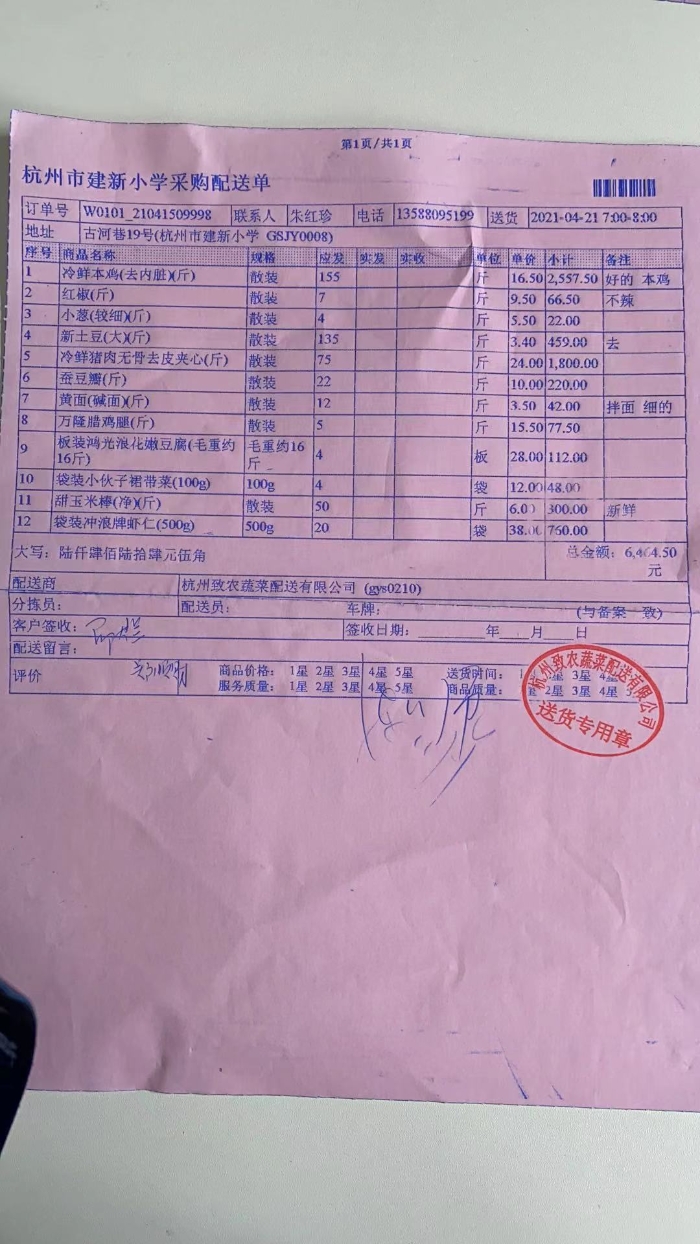 第1页/共1页
杭州市建新小学采购配送单
订单号 W0101_21041509998 联系人 朱红珍 电话 13588095199 送货 2021-04-21 7:00-8:00
地址 古河巷19号(杭州市建新小学 GSJY0008)
序号 商品名称 规格 应发 实发 实收 单位 单价 小计 备注
1 冷鲜本鸡(去内脏)(斤) 散装 155 斤 16.50 2,557.50 好的 本鸡
2 红椒(斤) 散装 7 斤 9.50 66.50 不辣
3 小葱(较细)(斤) 散装 4 斤 5.50 22.00
4 新土豆(大)(斤) 散装 135 斤 3.40 459.00 去
5 冷鲜猪肉无骨去皮夹心(斤) 散装 75 斤 24.00 1,800.00
6 蚕豆瓣(斤) 散装 22 斤 10.00 220.00
7 黄面(碱面)(斤) 散装 12 斤 3.50 42.00 拌面 细的
8 万隆腊鸡腿(斤) 散装 5 斤 15.50 77.50
9 板装鸿光浪花嫩豆腐(毛重约16斤) 毛重约16斤 4 板 28.00 112.00
10 袋装小伙子裙带菜(100g) 100g 4 袋 12.00 48.00
11 甜玉米棒(净)(斤) 散装 50 斤 6.00 300.00 新鲜
12 袋装冲浪牌虾仁(500g) 500g 20 袋 38.00 760.00
大写：陆仟肆佰陆拾肆元伍角 总金额：6,464.50元
配送商 杭州致农蔬菜配送有限公司 (gys0210)
分拣员： 配送员： 车牌： (与备案一致)
客户签收： 签收日期： 年 月 日
配送留言：
评价 商品价格： 1星 2星 3星 4星 5星 送货时间： 3星
服务质量： 1星 2星 3星 4星 5星 商品质量： 2星 3星 4星
杭州致农蔬菜配送有限公司
送货专用章